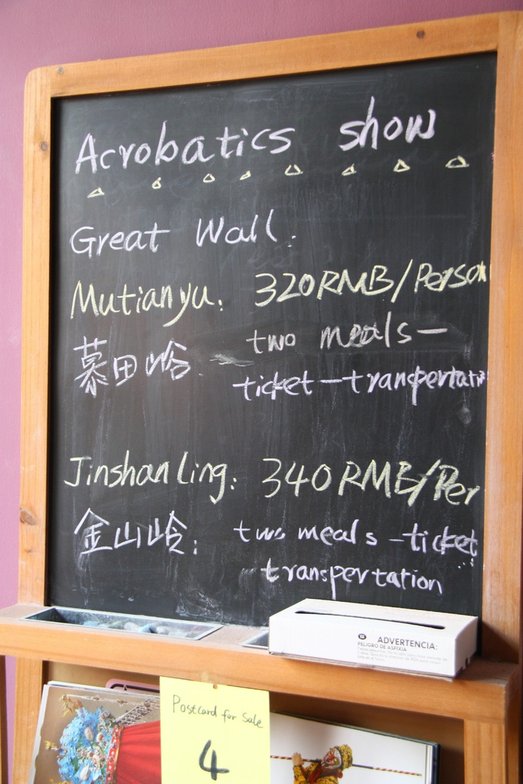 Acrobatics show
Great Wall.
Mutianyu: 320RMB/Person
慕田峪 two meals-
ticket-tranpertatin
Jinshanling: 340RMB/Per
金山岭: two meals-ticket
transpertation
ADVERTENCIA:
PELIGRO DE ASFIXIA
Postcard for sale
4